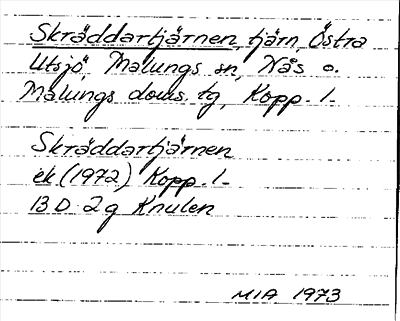 Skräddartjärnen, tjärn, Östra
Utsjö, Malungs sn, Nås o.
Malungs doms. tg, Kopp. l-
Skräddartjärnen
ek (1972) Kopp. l-
13 D 2g Knulen
MIA 1973